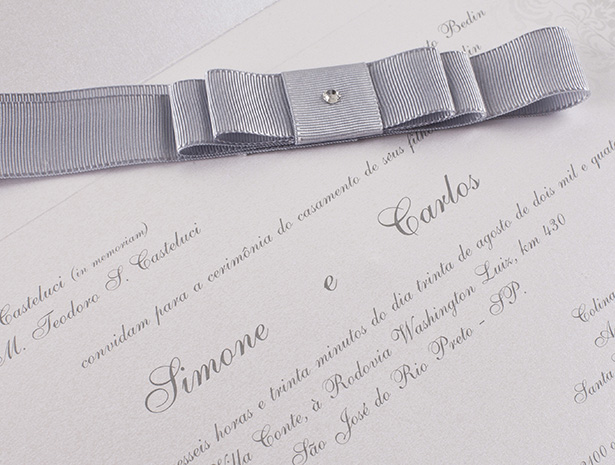 to Bedin
in
Casteluci (in memoriam)
M. Teodoro S. Casteluci
convidam para a cerimônia do casamento de seus
Simone e Carlos
esseis horas e trinta minutos do dia trinta de agosto de dois mil e
Conte, à Rodovia Washington Luiz, km 430
São José do Rio Preto - SP.
Colina
A
Santa